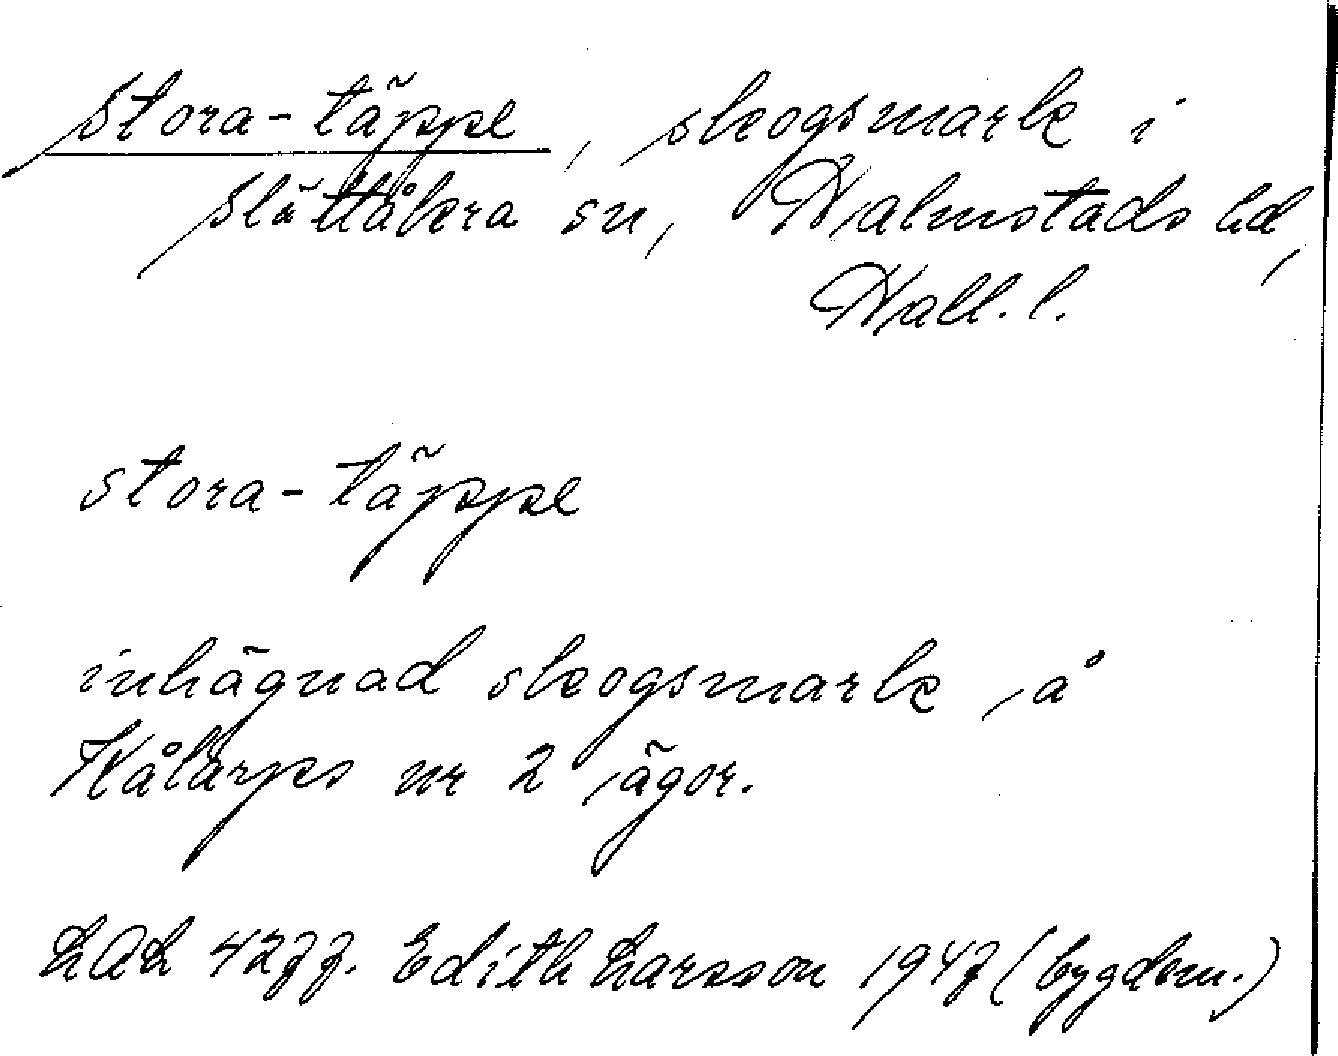 Stora-täppe, skogsmark i
Slättåkra sn, Halmstads hd,
Hall. l.
stora-täppe
inhägnad skogsmark, å
Kålarps nr 2 ägor.
LAL 4277. Edith Larsson 1947 (bygdem.)